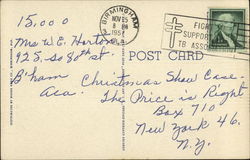 15,000
BIRMINGHAM
NOV 25
8 PM
195
ALA
FIGHT
SUPPORT
TB ASSO
Mrs W.E. Horton
925. So 80th St.
B'ham
Ala.
POST CARD
Christmas Show Case.
The Price is Right
Box 710
New York 46.
N.Y.